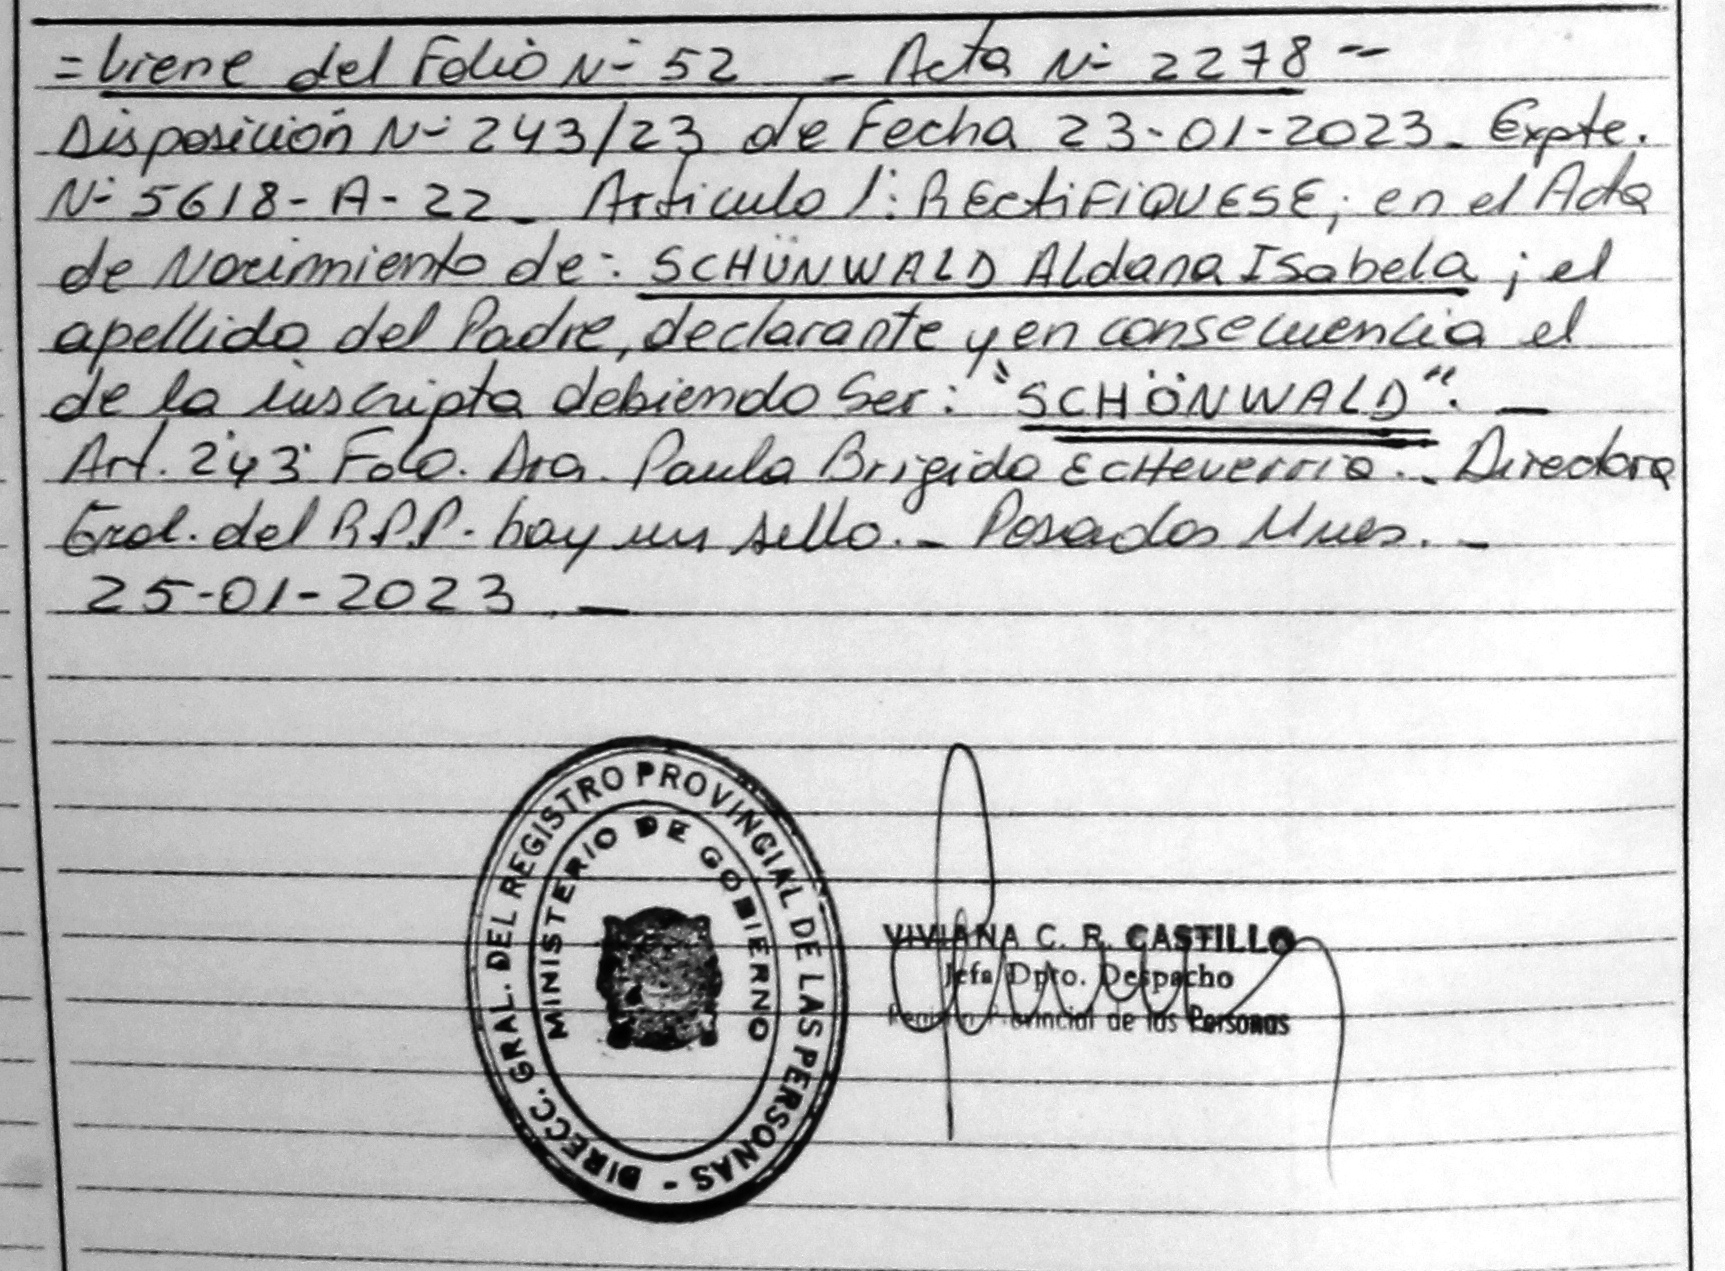 =Viene del Folio Nº 52 _ Acta Nº 2278--
Disposición Nº 243/23 de Fecha 23-01-2023_ Expte.
Nº 5618-A-22_ Articulo 1º: RECtiFIQUESE; en el Acta
de Nacimiento de: SCHÜNWALD Aldana ISabela ; el
apellido del Padre, declarante y en consecuencia el
de la inscripta debiendo Ser: "SCHÖNWALD". _
Art. 2º y 3º Fdo. Dra. Paula Brigida ECHeverria._ Directora
Gral. del R.P.P. hay un sello._ Posadas Mnes._
25-01-2023_
DIRECC. GRAL. DEL REGISTRO PROVINCIAL DE LAS PERSONAS -
MINISTERIO DE GOBIERNO
VIVIANA C. R. CASTILLO
Jefa Dpto. Despacho
Provincial de las Personas